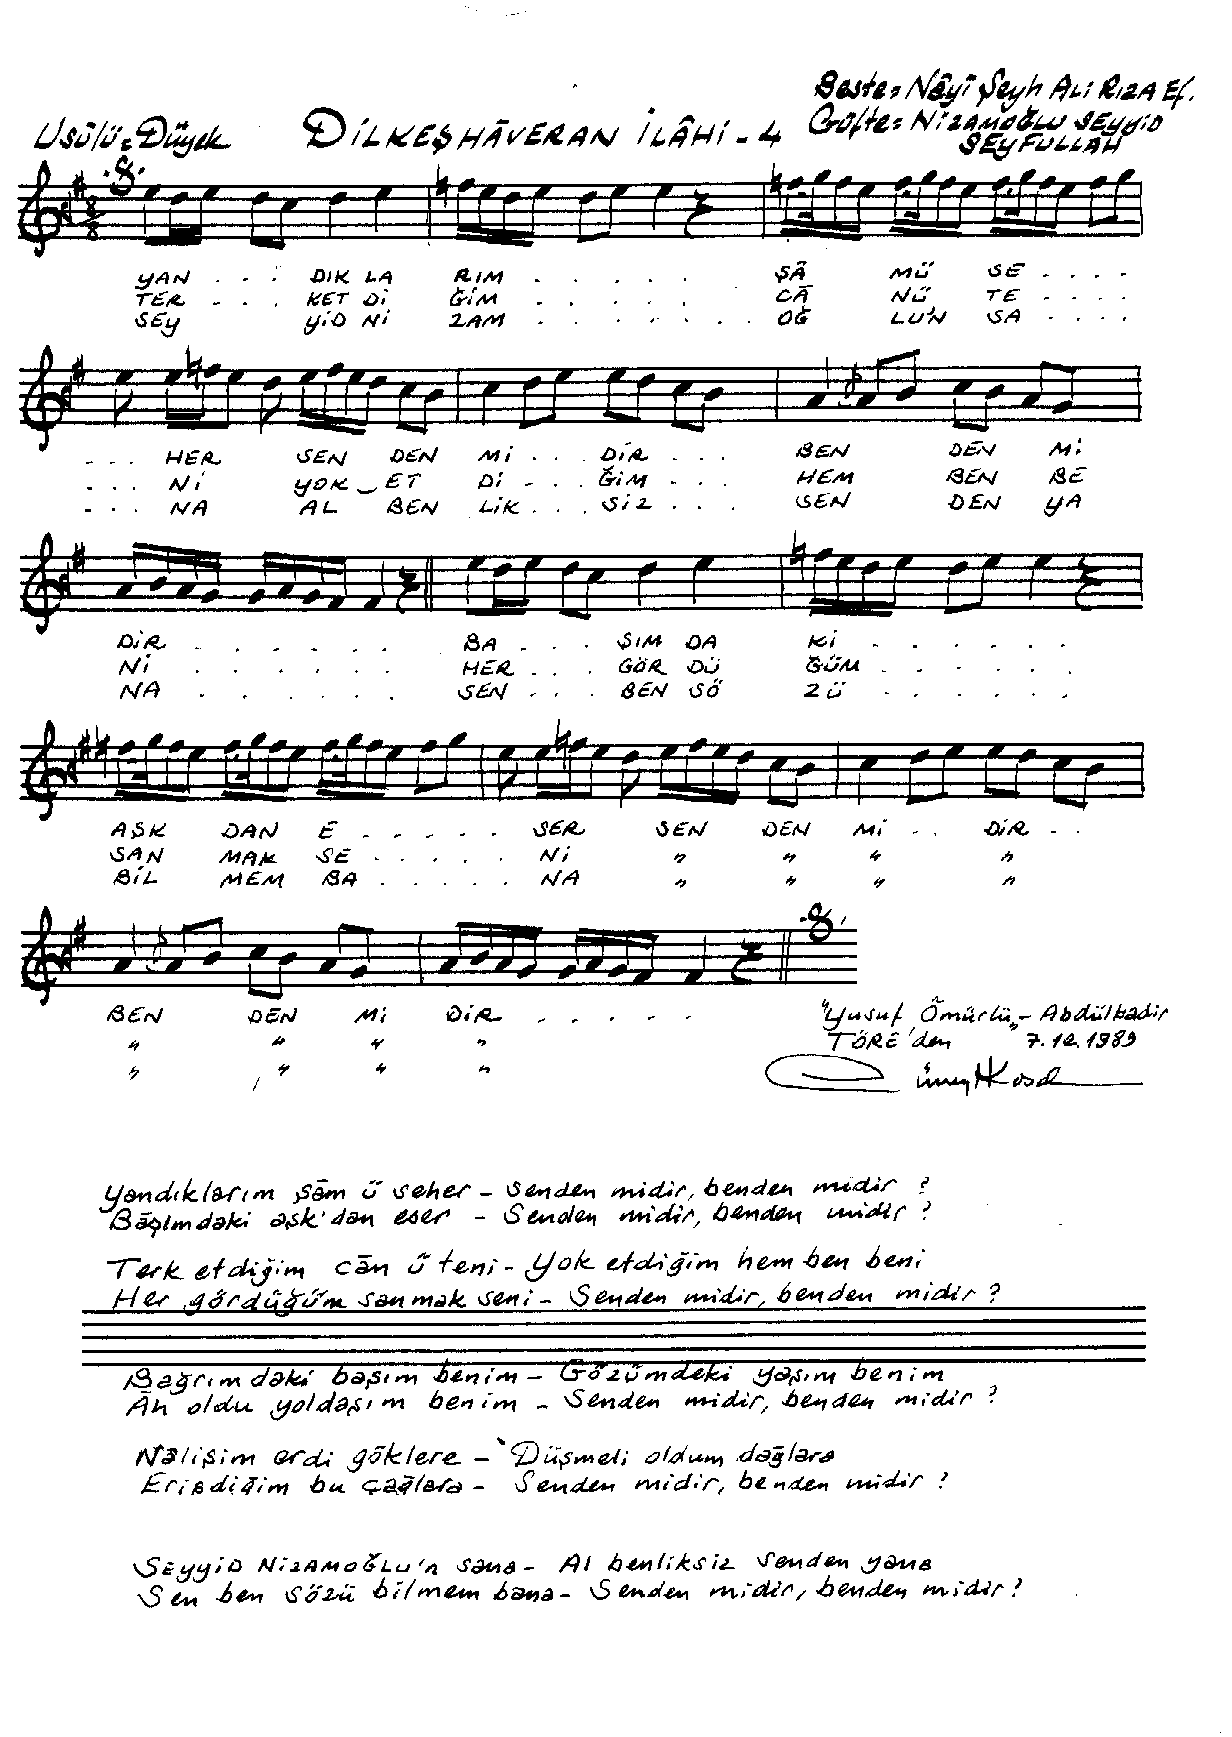 Beste: Nâyî Şeyh ALİ RIZA Ef.
Usûlü: Düyek DİLKEŞHÂVERAN İLÂHİ - 4 Güfte: NİZAMOĞLU SEYYİD
SEYFULLAH
8
8
YAN . . . DIK LA RIM . . . . . ŞÂ MÜ SE . . . .
TER . . . KET Dİ ĞİM . . . . . CÂ NÜ TE . . . .
SEY YİD Nİ ZAM . . . . . . OĞ LU'N SA . . . .
. . . HER SEN DEN Mİ . . DİR . . . BEN DEN Mİ
. . . Nİ YOK_ET Dİ . . . ĞİM . . . HEM BEN BE
. . . NA AL BEN LİK . . . SİZ . . . SEN DEN YA
DİR . . . . . . . BA . . . ŞIM DA Kİ . . . . . .
Nİ . . . . . . . HER . . . GÖR DÜ ĞÜM . . . . . .
NA . . . . . . SEN . . . BEN SÖ ZÜ . . . . . .
AŞK DAN E . . . . . SER SEN DEN Mİ . . DİR . .
SAN MAK SE . . . . . Nİ " " " "
BİL MEM BA . . . . . NA " " " "
BEN DEN Mİ DİR . . . . .
" " " "
" " " "
"Yusuf Ömürlü" - Abdülkadir
TÖRE'den 7.12.1989
Yandıklarım şâm ü seher - Senden midir, benden midir ?
Başımdaki aşk'dan eser - Senden midir, benden midir ?
Terk etdiğim cân ü teni - Yok etdiğim hem ben beni
Her gördüğüm sanmak seni - Senden midir, benden midir ?
Bağrımdaki başım benim - Gözümdeki yaşım benim
Âh oldu yoldaşım benim - Senden midir, benden midir ?
Nâlişim erdi göklere - Düşmeli oldum dağlara
Erişdiğim bu çağlara - Senden midir, benden midir ?
SEYYİD NİZAMOĞLU'n sana - Al benliksiz senden yana
Sen ben sözü bilmem bana - Senden midir, benden midir ?